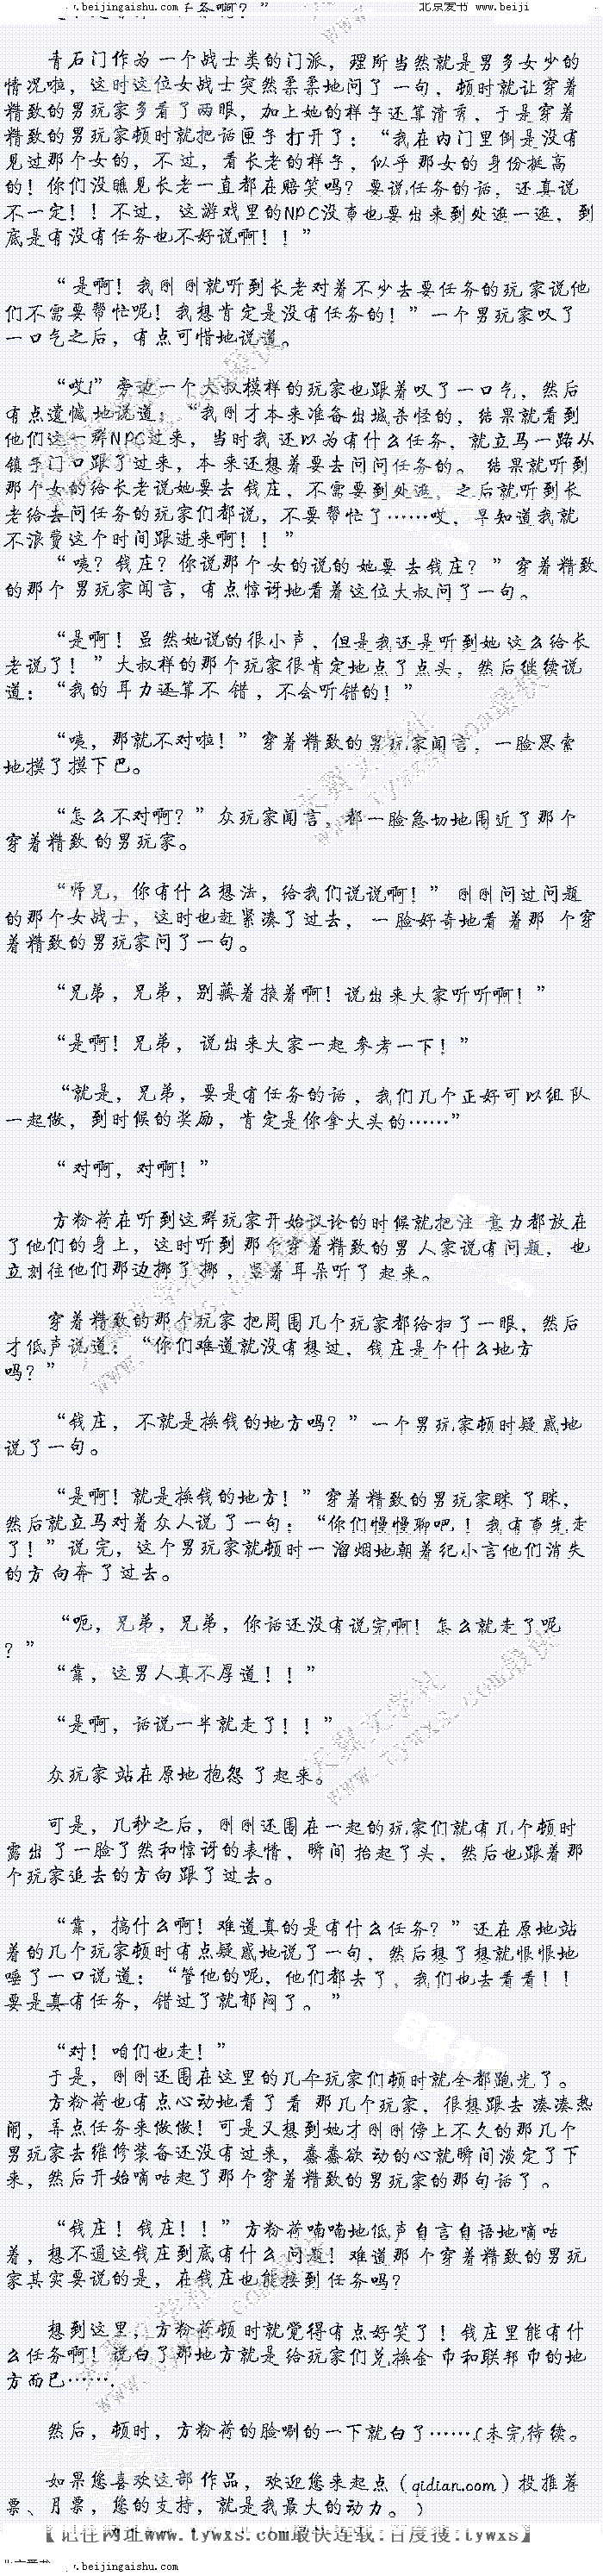 www.beijingaishu.com
北京爱书 www.beiji
青石门作为一个战士类的门派，理所当然就是男多女少的
情况啦，这时这位女战士突然柔柔地问了一句，顿时就让穿着
精致的男玩家多看了两眼，加上她的样子还算清秀，于是穿着
精致的男玩家顿时就把话匣子打开了：“我在内门里倒是没有
见过那个女的，不过，看长老的样子，似乎那女的身份挺高
的！你们没瞧见长老一直都在赔笑吗？要说任务的话，还真说
不一定！！不过，这游戏里的NPC没事也要出来到处逛一逛，到
底是有没有任务也不好说啊！！”
“是啊！我刚刚就听到长老对着不少去要任务的玩家说他
们不需要帮忙呢！我想肯定是没有任务的！”一个男玩家叹了
一口气之后，有点可惜地说道。
“哎！”旁边一个大叔模样的玩家也跟着叹了一口气，然后
有点遗憾地说道：“我刚才本来准备出城杀怪的，结果就看到
他们这一群NPC过来，当时我还以为有什么任务，就立马一路从
镇子门口跟了过来，本来还想着要去问问任务的。结果就听到
那个女的给长老说她要去钱庄，不需要到处逛，之后就听到长
老给去问任务的玩家们都说，不要帮忙了……哎，早知道我就
不浪费这个时间跟进来啊！！”
“咦？钱庄？你说那个女的说的她要去钱庄？”穿着精致
的那个男玩家闻言，有点惊讶地看着这位大叔问了一句。
“是啊！虽然她说的很小声，但是我还是听到她这么给长
老说了！”大叔样的那个玩家很肯定地点了点头，然后继续说
道：“我的耳力还算不错，不会听错的！”
“咦，那就不对啦！”穿着精致的男玩家闻言，一脸思索
地摸了摸下巴。
“怎么不对啊？”众玩家闻言，都一脸急切地围近了那个
穿着精致的男玩家。
“师兄，你有什么想法，给我们说说啊！”刚刚问过问题
的那个女战士，这时也赶紧凑了过去，一脸好奇地看着那个穿
着精致的男玩家问了一句。
“兄弟，兄弟，别藏着掖着啊！说出来大家听听啊！”
“是啊！兄弟，说出来大家一起参考一下！”
“就是，兄弟，要是有任务的话，我们几个正好可以组队
一起做，到时候的奖励，肯定是你拿大头的……”
“对啊，对啊！”
方粉荷在听到这群玩家开始议论的时候就把注意力都放在
了他们的身上，这时听到那个穿着精致的男人家说有问题，也
立刻往他们那边挪了挪，竖着耳朵听了起来。
穿着精致的那个玩家把周围几个玩家都给扫了一眼，然后
才低声说道：“你们难道就没有想过，钱庄是个什么地方
吗？”
“钱庄，不就是换钱的地方吗？”一个男玩家顿时疑惑地
说了一句。
“是啊！就是换钱的地方！”穿着精致的男玩家眯了眯，
然后就立马对着众人说了一句：“你们慢慢聊吧！我有事先走
了！”说完，这个男玩家就顿时一溜烟地朝着纪小言他们消失
的方向奔了过去。
“呃，兄弟，兄弟，你话还没有说完啊！怎么就走了呢
？”
“靠，这男人真不厚道！！”
“是啊，话说一半就走了！！”
众玩家站在原地抱怨了起来。
可是，几秒之后，刚刚还围在一起的玩家们就有几个顿时
露出了一脸了然和惊讶的表情，瞬间抬起了头，然后也跟着那
个玩家追去的方向跟了过去。
“靠，搞什么啊！难道真的是有什么任务？”还在原地站
着的几个玩家顿时有点疑惑地说了一句，然后想了想就恨恨地
唾了一口说道：“管他的呢，他们都去了，我们也去看看！！
要是真有任务，错过了就郁闷了。”
“对！咱们也走！”
于是，刚刚还围在这里的几个玩家们顿时就全都跑光了。
方粉荷也有点心动地看了看那几个玩家，很想跟去凑凑热
闹，弄点任务来做做！可是又想到她才刚刚傍上不久的那几个
男玩家去维修装备还没有过来，蠢蠢欲动的心就瞬间淡定了下
来，然后开始嘀咕起了那个穿着精致的男玩家的那句话了。
“钱庄！钱庄！！”方粉荷喃喃地低声自言自语地嘀咕
着，想不通这钱庄到底有什么问题！难道那个穿着精致的男玩
家其实要说的是，在钱庄也能接到任务吗？
想到这里，方粉荷顿时就觉得有点好笑了！钱庄里能有什
么任务啊！说白了那地方就是给玩家们兑换金币和联邦币的地
方而已……
然后，顿时，方粉荷的脸唰的一下就白了……（未完待续。
如果您喜欢这部作品，欢迎您来起点（qidian.com）投推荐
票、月票，您的支持，就是我最大的动力。）
【记住网址www.tywxs.com最快连载:百度搜:tywxs】
www.beijingaishu.com